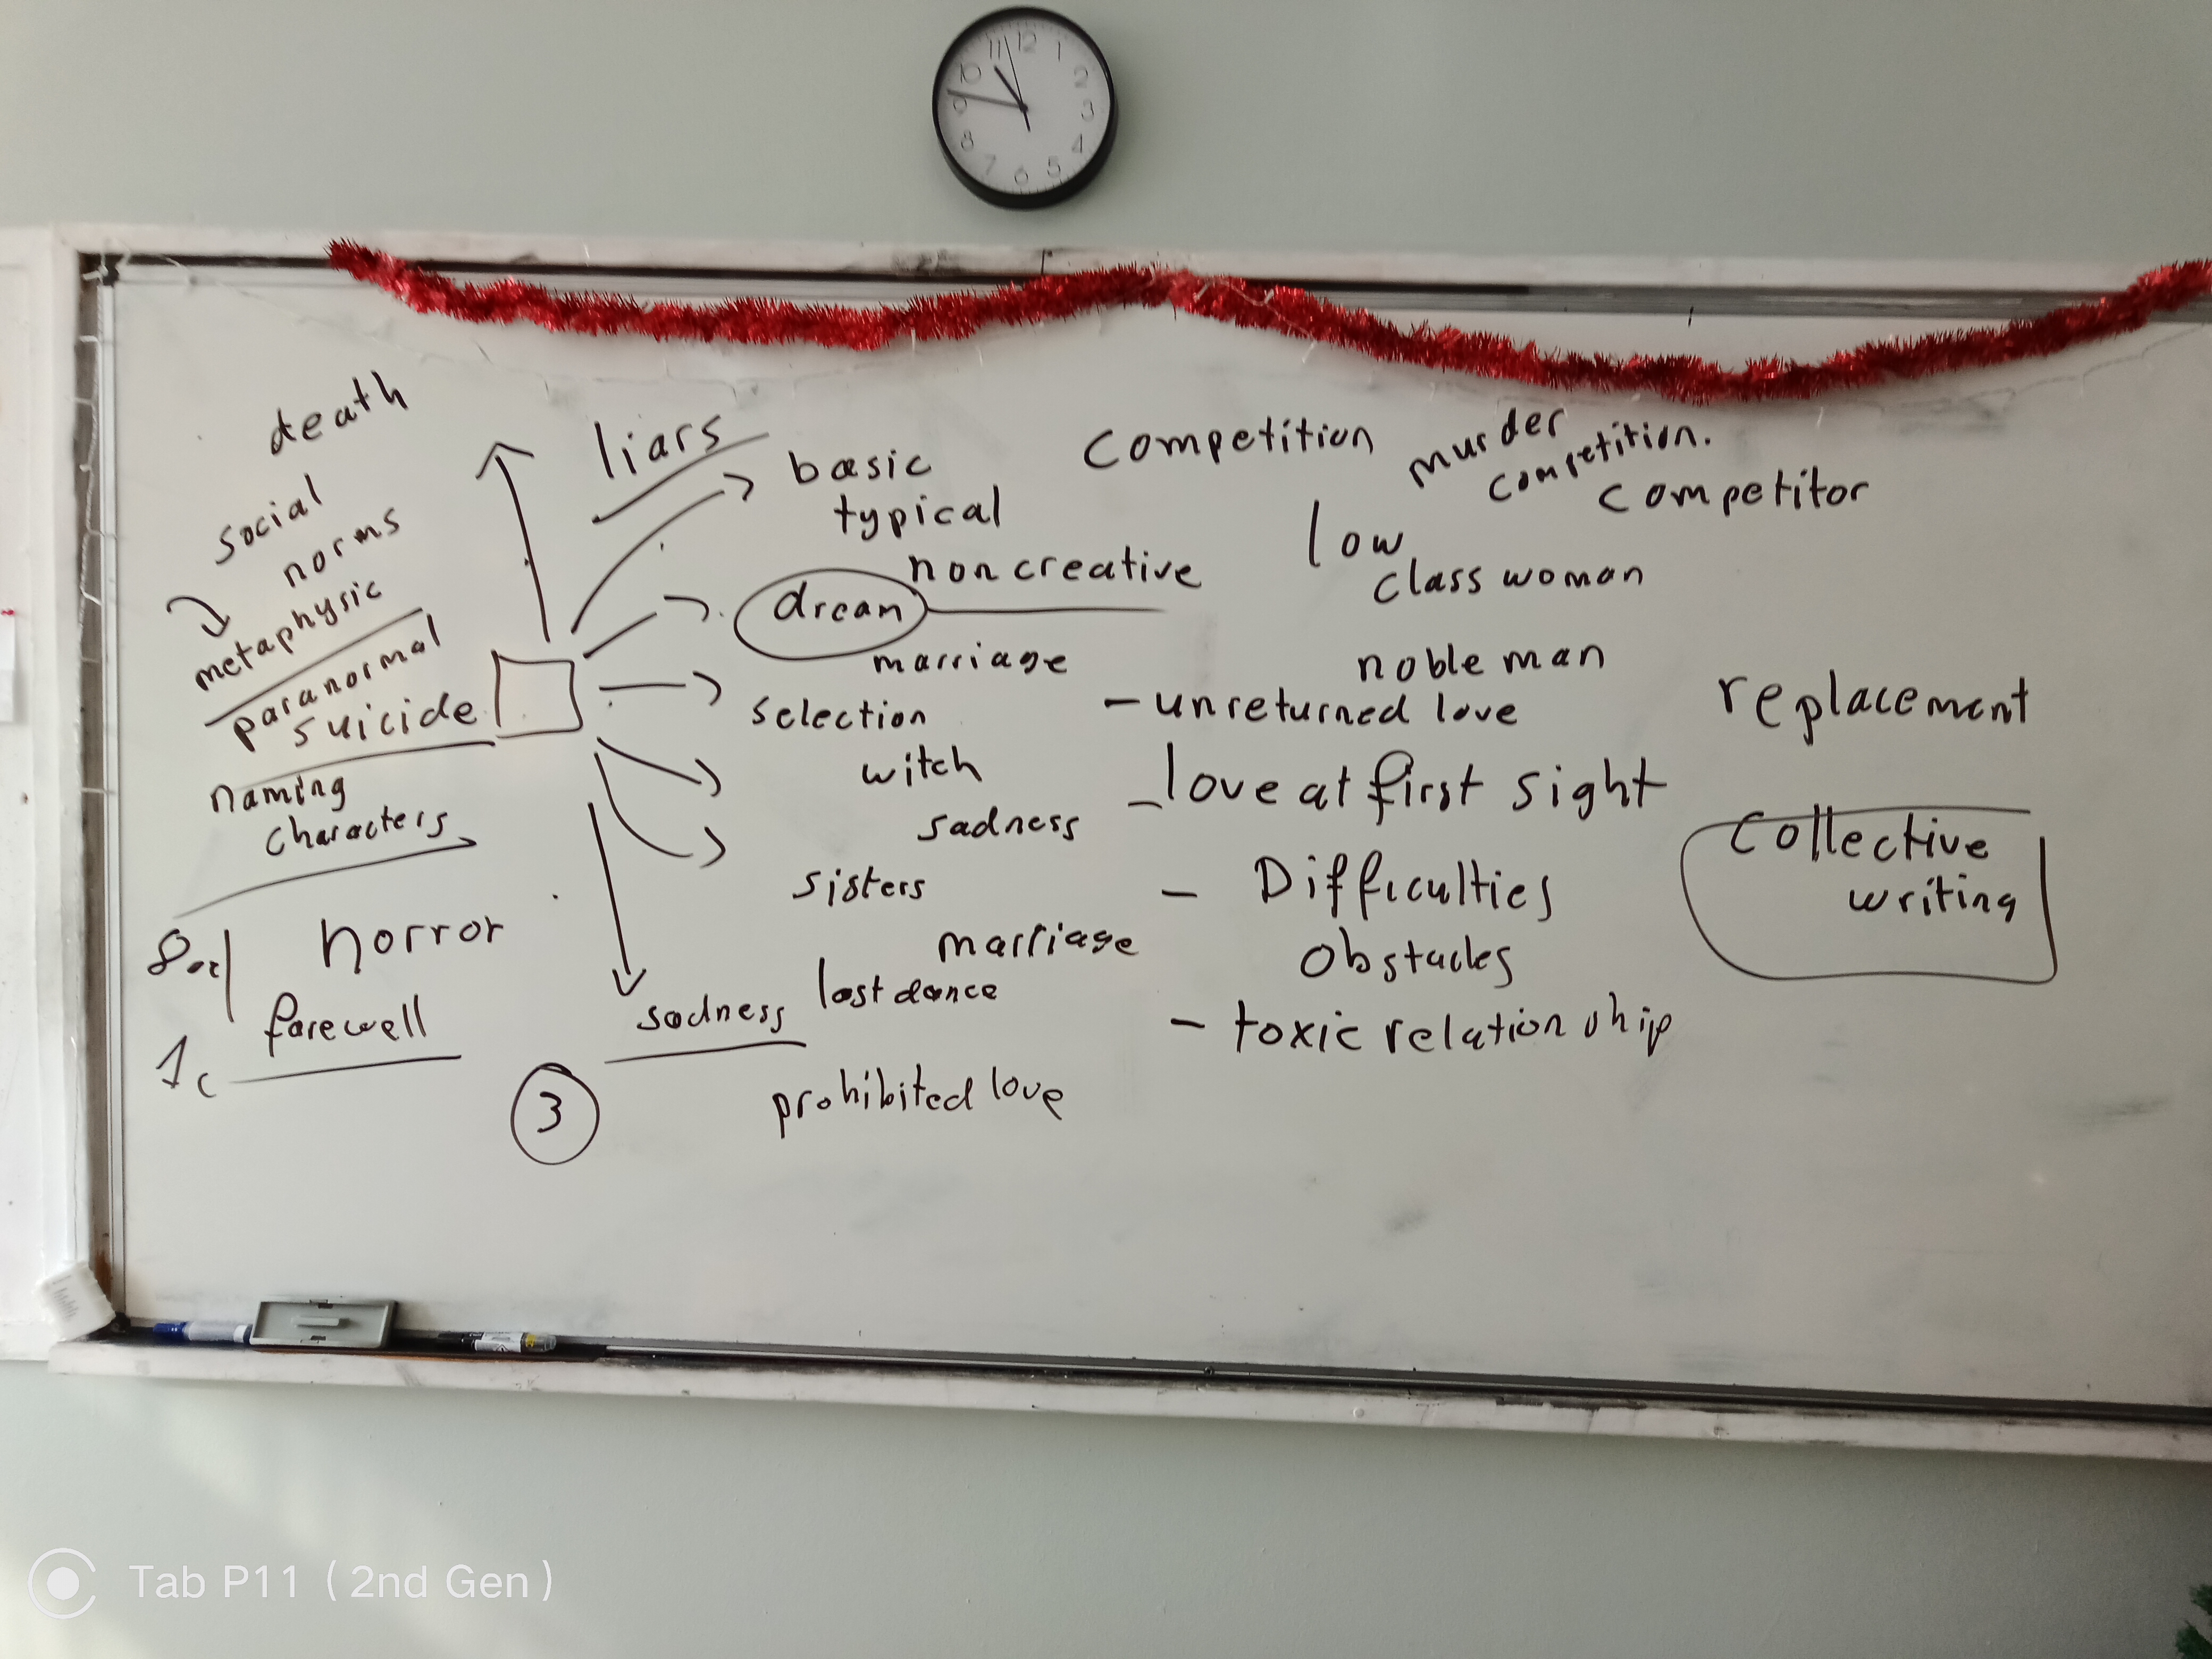 12
11
1
10
2
9
3
8
4
7
5
6
death
social
norms
metaphysic
paranormal
suicide
naming
characters
horror
farewell
liars
basic
typical
non creative
dream
marriage
selection
witch
sadness
sisters
marriage
last dance
sadness
3
prohibited love
competition
murder
competition.
competitor
low
class woman
noble man
- unreturned love
- love at first sight
- Difficulties
Obstacles
- toxic relationship
replacement
Collective
writing
Tab P11 (2nd Gen)